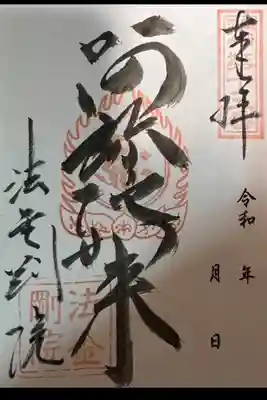 奉拝
令和 年
月 日
阿弥陀如来
法金剛院
法金
剛院